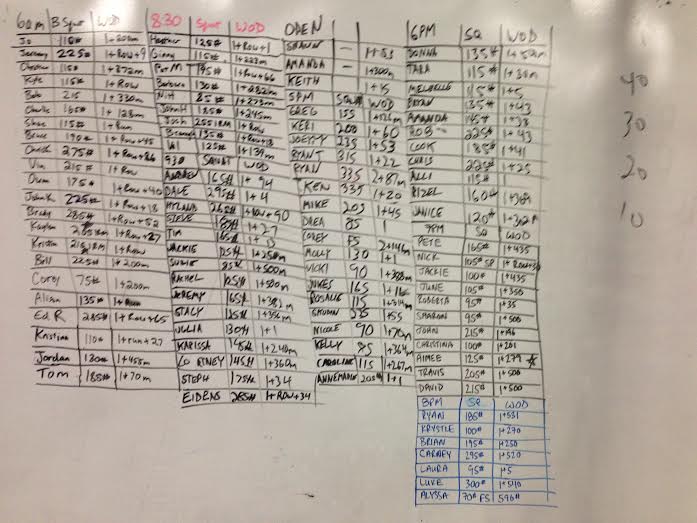 6am B Squat WOD
Jo 110# 1+200m
Jeremy 225# 1+Row+9
Christine 115# 1+372m
Kyle 115# 1+Row
Bob 215 1+330m
Charlie 165# 1+128m
Shae 115# 1+Run
Bruce 190# 1+Row+45
Chuck 275# 1+Row+26
Vin 215# 1+Row
Owen 175# 1+Row+40
John K 225# 1+Row+18
Brady 285# 1+Row+52
Kaylan 1+Row+27
Kristin 1+Row
Bill 225# 1+200m
Corey 75# 1+200m
Alison 135# 1+Run
Ed R 285# 1+Row+65
Kristina 110# 1+run+27
Jordan 130# 1+455m
Tom 185# 1+70m
8:30 Squat WOD
Heather 125# 1+Row+1
Ginny 115# 1+223m
Pat M 195# 1+Row+66
Barbara 130# 1+232m
NIH 85# 1+273m
John H 185# 1+245m
Josh 255 1RM 1+Row
Brandy 135# 1+Row+18
Val 125# 1+139m
930 SQUAT WOD
ANDREW 165# 1+94
DALE 295# 1+4
HYLAND 265# 1+Row+90
STEVE 185# 1+27
TIM 165# 1+13
JACKIE 125# 1+250m
SUZIE 85# 1+500m
RACHEL 125# 1+500m
JEREMY 165# 1+382m
STACY 125# 1+356m
JULIA 130# 1+1
KARISSA 145# 1+240m
COURTNEY 145# 1+360m
STEPH 175# 1+34
EIDENS 265# 1+Row+34
OPEN
SHAWN – 1+53
AMANDA – 1+300m
KEITH 1+15
5PM SQUAT WOD
GREG 155 1+126m
KERI 200 1+60
JOEYY 235 1+53
RYANT 315 1+22
RYAN 335 2+87m
KEN 335 1+20
MIKE 205 1+45
DREA 85 1
COREY FS 2+146m
MOLLY 130 1+1
VICKI 90 1+388m
JUKES 165 1+16
ROSALIE 115 1+314m
SHUDAN 225 1+55
NICOLE 90 1+70m
KELLY 95 1+364m
CAROLINE 115 1+267m
ANNEMARIE 205# 1+1
6PM SQ WOD
DONNA 135# 1+52m
TARA 115# 1+30m
MELBELLE 115# 1+5
BRYAN 135# 1+43
AMANDA 145# 1+38
ROB 225# 1+43
COOK 185# 1+41
CHRIS 225# 1+25
ALLI 115#
RIZEL 160# 1+368m
JANICE 120# 1+362m
7PM SQ WOD
PETE 165# 1+435
NICK 105# SP
JACKIE 100# 1+435
JUNE 105# 1+350
ROBERTA 95# 1+35
SHARON 95# 1+500
JOHN 215# 1+196
CHRISTINA 100# 1+201
AIMEE 125# 1+279 ☆
TRAVIS 205# 1+500
DAVID 215# 1+500
8PM SQ WOD
RYAN 185# 1+531
KRYSTLE 100# 1+270
BRIAN 195# 1+250
CARNEY 295# 1+520
LAURA 95# 1+5
LUKE 300# 1+540
ALYSSA 70# FS 590#
40
30
20
10